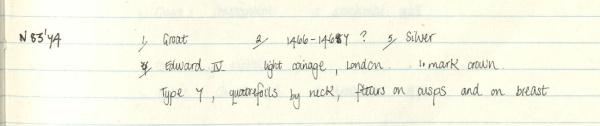 N 83'44 1, Groat 2, 1466-1469 ? 5, Silver
4, Edward IV light coinage, London i. mark crown
Type 7, quatrefoils by neck, fleurs on cusps and on breast